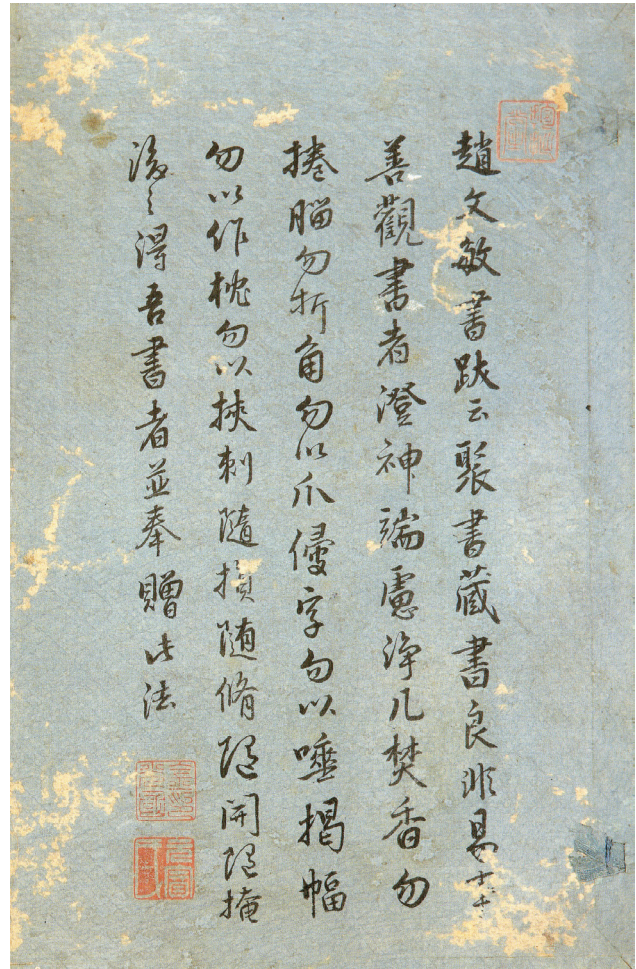 趙文敏書跋云聚書藏書良非易事
善觀書者澄神端慮淨几焚香勿
捲腦勿折角勿以爪侵字勿以唾揭幅
勿以作枕勿以挾刺隨損隨脩隨開隨掩
後之得吾書者並奉贈此法